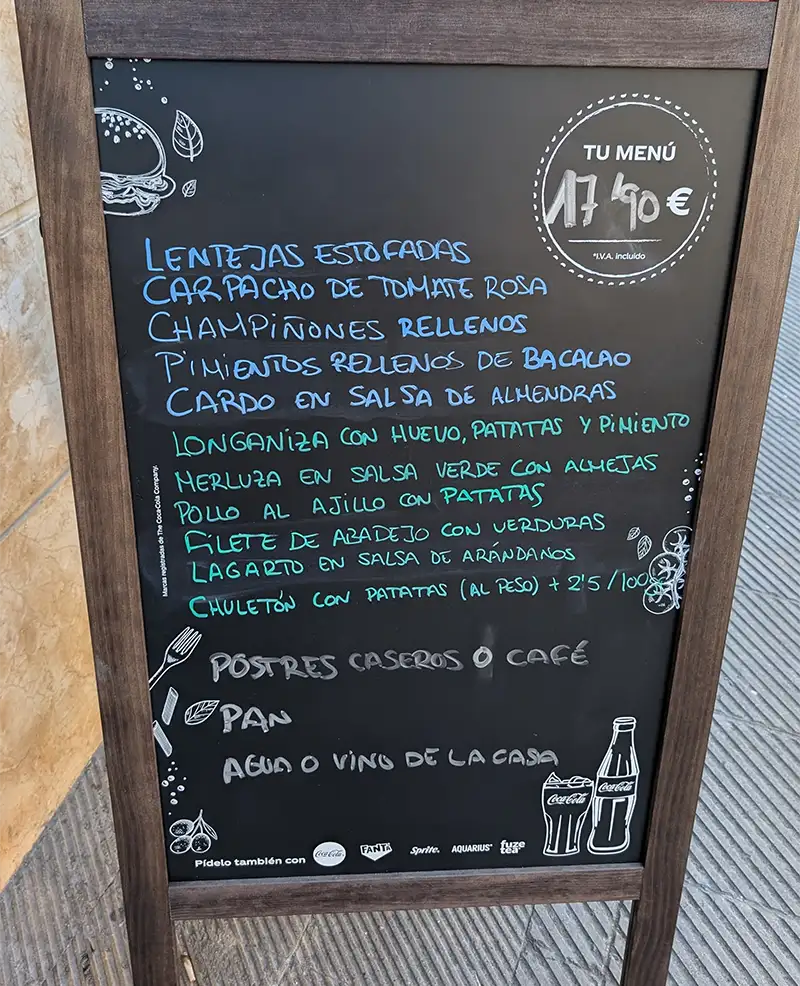 TU MENÚ
17'90 €
*I.V.A. incluido
LENTEJAS ESTOFADAS
CARPACHO DE TOMATE ROSA
CHAMPIÑONES RELLENOS
PIMIENTOS RELLENOS DE BACALAO
CARDO EN SALSA DE ALMENDRAS
LONGANIZA CON HUEVO, PATATAS Y PIMIENTO
MERLUZA EN SALSA VERDE CON ALMEJAS
POLLO AL AJILLO CON PATATAS
FILETE DE ABADEJO CON VERDURAS
LAGARTO EN SALSA DE ARÁNDANOS
CHULETÓN CON PATATAS (AL PESO) + 2'5 /100
POSTRES CASEROS O CAFÉ
PAN
AGUA O VINO DE LA CASA
Marcas registradas de The Coca-Cola Company.
Coca-Cola Coca-Cola
Pídelo también con Coca-Cola FANTA Sprite AQUARIUS fuze tea